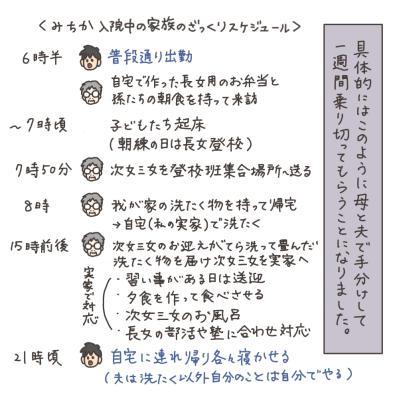 ＜みちか入院中の家族のざっくりスケジュール＞
具体的にはこのように母と夫で手分けして
一週間乗り切ってもらうことになりました。
6時半 普段通り出勤
自宅で作った長女用のお弁当と
孫たちの朝食を持って来訪
～7時頃 子どもたち起床
(朝練の日は長女登校)
7時50分 次女三女を登校班集合場所へ送る
8時 我が家の洗たく物を持って帰宅
→自宅(私の実家)で洗たく
15時前後 次女三女のお迎えがてら洗って畳んだ
洗たく物を届け次女三女を実家へ
実家で対応
・習い事がある日は送迎
・夕食を作って食べさせる
・次女三女のお風呂
・長女の部活や塾に合わせ対応
21時頃 自宅に連れ帰り各々寝かせる
(夫は洗たく以外自分のことは自分でやる)